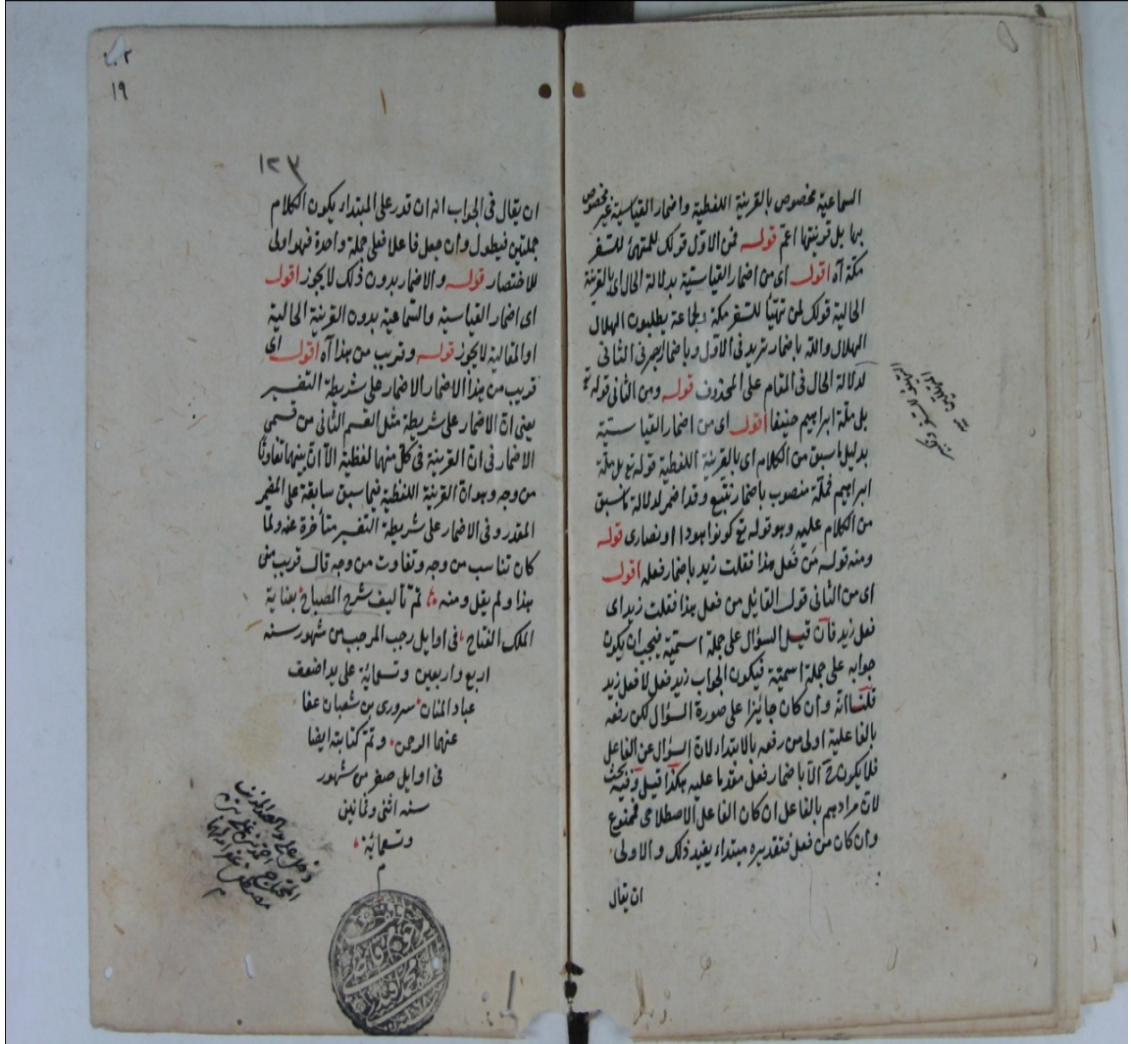 السماعية مخصوص بالقرينة اللفظية واضمار القياسية غير مخصوص
بها بل قرينتها اعم قوله فمن الاول قولك للمتهئ للسفر
مكة آه اقول اى من اضمار القياسية بدلالة الحال اى بالقرينة
الحالية قولك لمن تهيأ للسفر مكة ولجماعة يطلبون الهلال
الهلال والله باضمار تريد فى الاول وباضمار ابصر فى الثانى
لدلالة الحال فى المقام على المحذوف قوله ومن الثانى قوله تع
بل ملة ابراهيم حنيفا اقول اى من اضمار القياسية
بدليل ما سبق من الكلام اى بالقرينة اللفظية قوله تع بل ملة
ابراهيم فملة منصوب باضمار نتبع وقد اضمر لدلالة ما سبق
من الكلام عليه وهو قوله تع كونوا هودا او نصارى قوله
ومنه قوله من فعل هذا فقلت زيد باضمار فعله اقول
اى من الثانى قول القائل من فعل هذا فقلت زيد اى
فعل زيد فان قيل السؤال على جملة اسمية فيجب ان يكون
جوابه على جملة اسمية فيكون الجواب زيد فعل لا فعل زيد
قلنا انه وان كان جائزا على صورة السؤال لكن رفعه
بالفاعلية اولى من رفعه بالابتداء لان السؤال عن الفاعل
فلا يكون ح الا باضمار فعل مقدما عليه هكذا قيل وفيه بحث
لان مرادهم بالفاعل ان كان الفاعل الاصطلاحى فممنوع
وان كان من فعل فتقديره مبتداء يفيد ذلك والاولى
ان يقال
١٩
١٢٣
ان يقال فى الجواب انه ان قدر على المبتداء يكون الكلام
جملتين فيطول وان جعل فاعلا فعلى جملة واحدة فهو اولى
للاختصار قوله والاضمار بدون ذلك لا يجوز اقول
اى اضمار القياسية والسماعية بدون القرينة الحالية
او المقالية لا يجوز قوله وقريب من هذا آه اقول اى
قريب من هذا الاضمار الاضمار على شريطة التفسير
يعنى ان الاضمار على شريطة مثل القسم الثانى من قسمى
الاضمار فى ان القرينة فى كل منهما لفظية الا ان بينهما تفاوتا
من وجه وهو ان القرينة اللفظية فيما سبق سابقة على المضمر
المقدر وفى الاضمار على شريطة التفسير متأخرة عنه ولما
كان تناسب من وجه وتفاوت من وجه قال قريب من
هذا ولم يقل ومنه تم تأليف شرح المصباح بعناية
الملك الفتاح فى اوايل رجب المرجب من شهور سنه
اربع واربعين وتسمائة على يد اضعف
عباد المنان سرورى بن شعبان عفا
عنهما الرحمن وتم كتابته ايضا
فى اوايل صفر من شهور
سنه اثنى وثمانين
وتسمائة
م